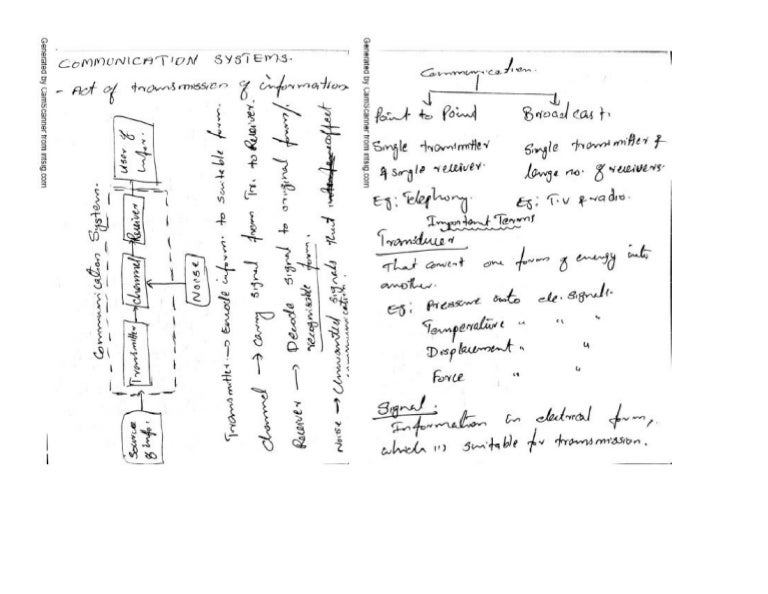 COMMUNICATION SYSTEMS.
- Act of transmission of information
Communication System.
Source
of info.
Transmitter
channel
Receiver
User of
infor.
Noise
Transmitter → Encode inform. to suitable form.
channel → Carry signal from Trs. to Receiver.
Receiver → Decode signal to original form/.
recognisable form.
Noise → Unwanted signals that affect
communication.
Generated by CamScanner from intsig.com
Communication.
Point to Point
Broadcast.
Single transmitter
& single receiver.
Single transmitter &
large no. of receivers.
Eg: Telephony.
Eg: T.V & radio.
Important Terms
Transducer
That convert one form of energy into
another.
Eg: Pressure into ele. signals.
Temperature " " "
Displacement " "
Force " "
Signal:
Information in electrical form,
which is suitable for transmission.
Generated by CamScanner from intsig.com